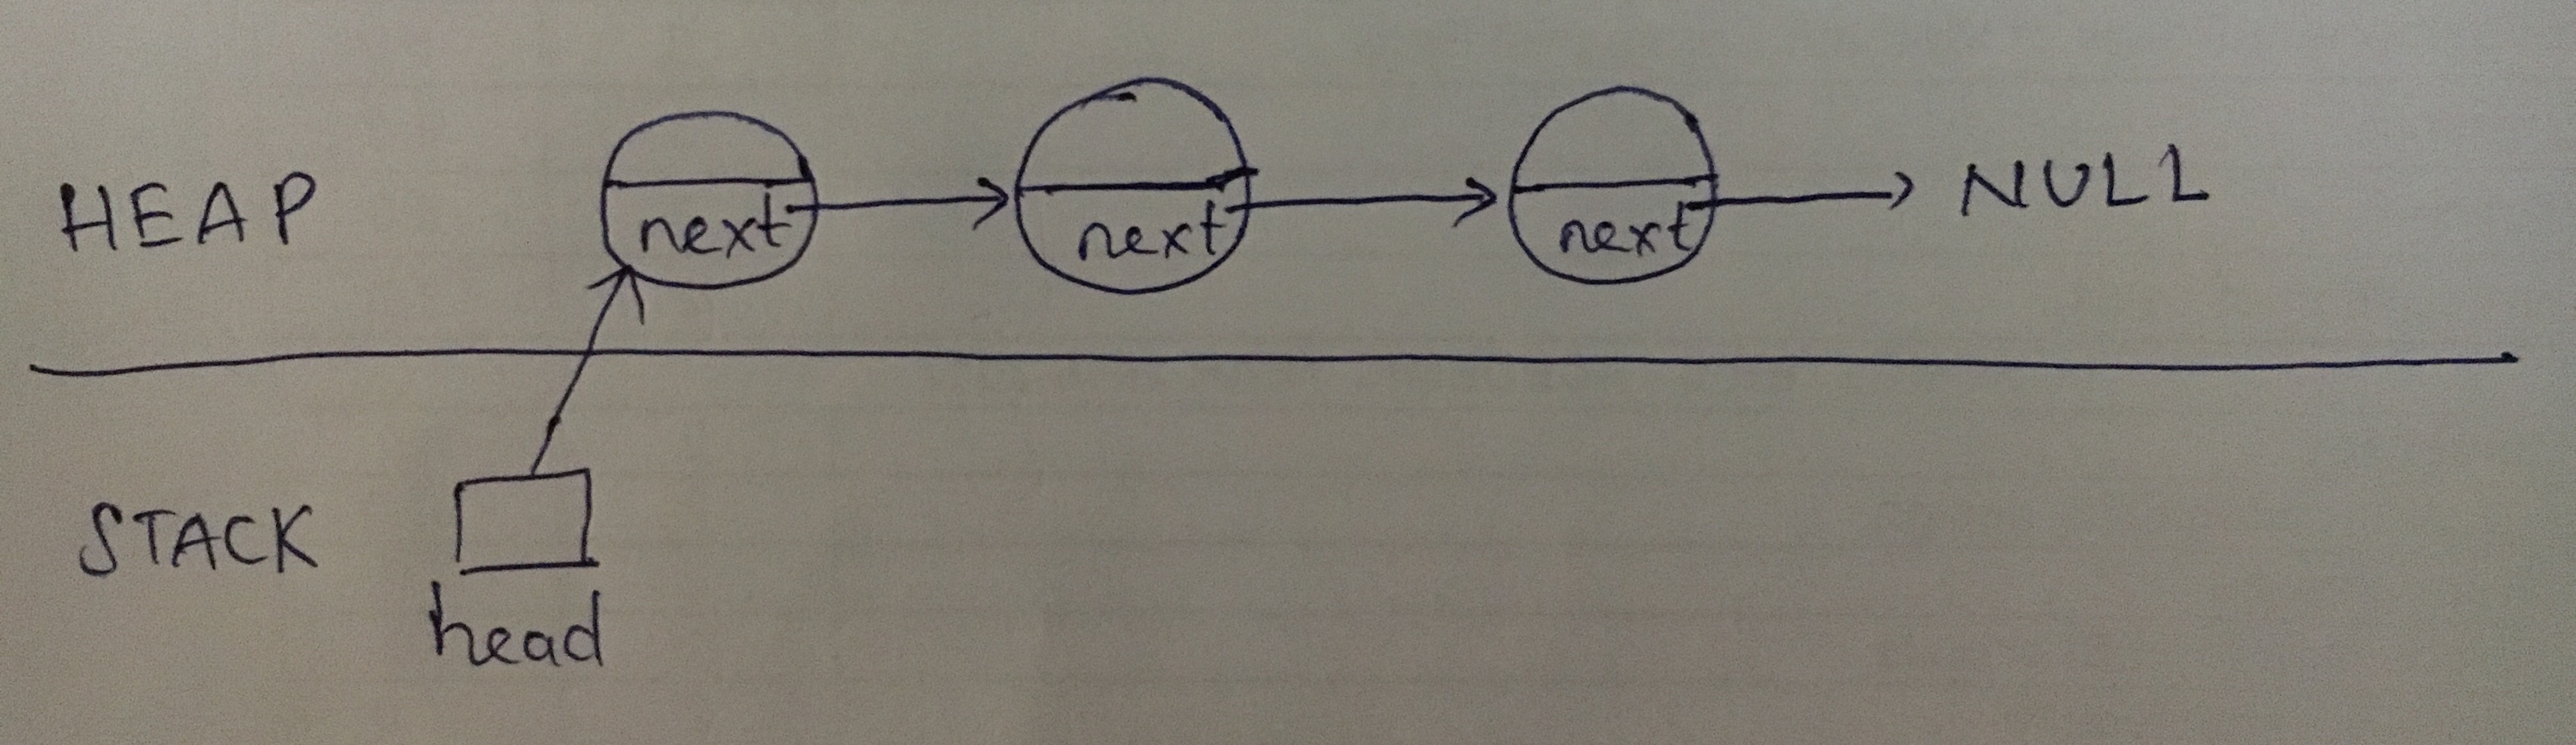 HEAP next next next NULL
STACK
head